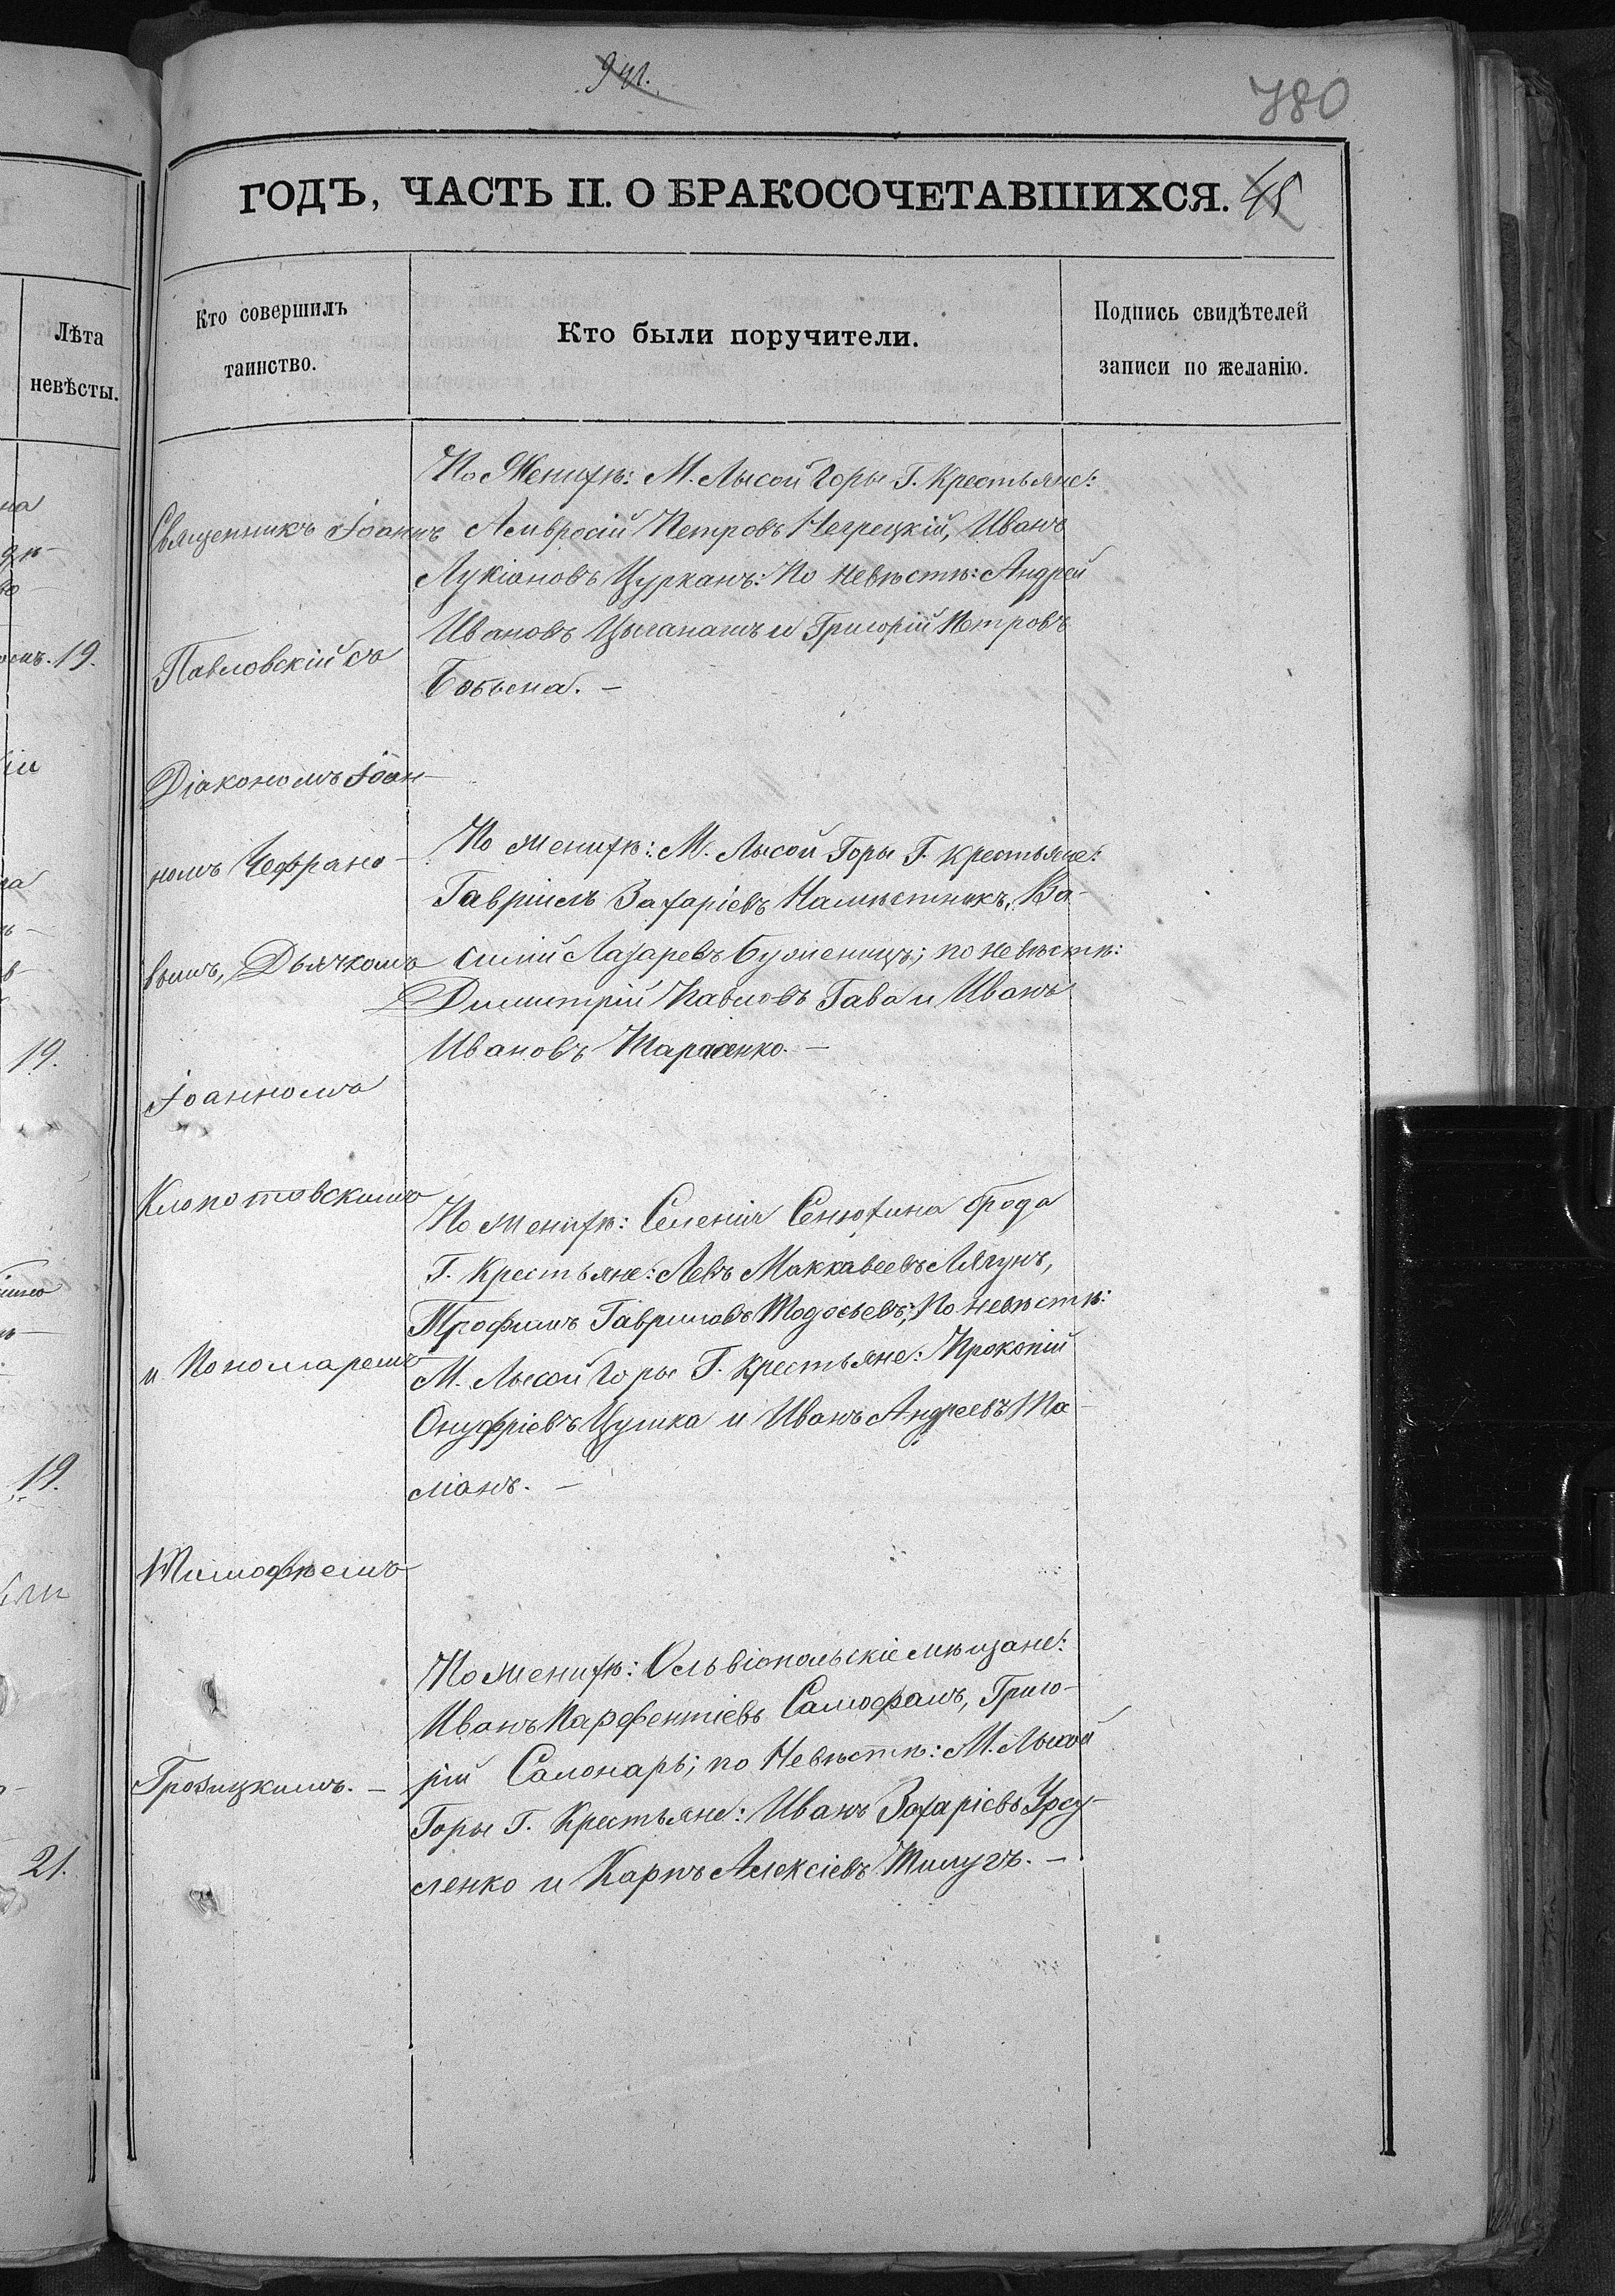 941.
780
ГОДЪ, ЧАСТЬ II. О БРАКОСОЧЕТАВШИХСЯ. 45
Лѣта
невѣсты.
Кто совершилъ
таинство.
Кто были поручители.
Подпись свидѣтелей
записи по желанію.
19.
19.
19.
21.
Священникъ Іоаннъ
Павловскій съ
Діакономъ Іоан-
номъ Чефрано-
вымъ, Дьячкомъ
Іоанномъ
Клопотовскимъ
и Пономаремъ
Тимофѣемъ
Грозицкимъ. -
По Женихѣ: М. Лысой Горы Г. Крестьяне:
Амвросій Петровъ Негрецкій, Иванъ
Лукіановъ Цурканъ: По Невѣстѣ: Андрей
Ивановъ Цыганашъ и Григорій Петровъ
По женихѣ: М. Лысой Горы Г. крестьяне:
Гавріилъ Захаріевъ Намѣстникъ, Ва-
силій Лазаревъ по невѣстѣ:
Димитрій Павловъ Гава и Иванъ
Ивановъ Тарасенко. -
По женихѣ: Селенія Сенюхина Брода
Г. Крестьяне: Левъ Маккавеевъ Лягунъ,
Трофимъ Гавриловъ Тодосьевъ; По невѣстѣ:
М. Лысой Горы Г. крестьяне: Прокопій
Онуфріевъ Цушка и Иванъ Андреевъ Та-
ліанъ. -
По женихѣ: Ольвіопольскіе мѣщане:
Иванъ Парфентіевъ Самофалъ, Григо-
рій Салонарь; по Невѣстѣ: М. Лысой
Горы Г. Крестьяне: Иванъ Захаріевъ Урсу-
ленко и Карпъ Алексіевъ Тилугъ. -